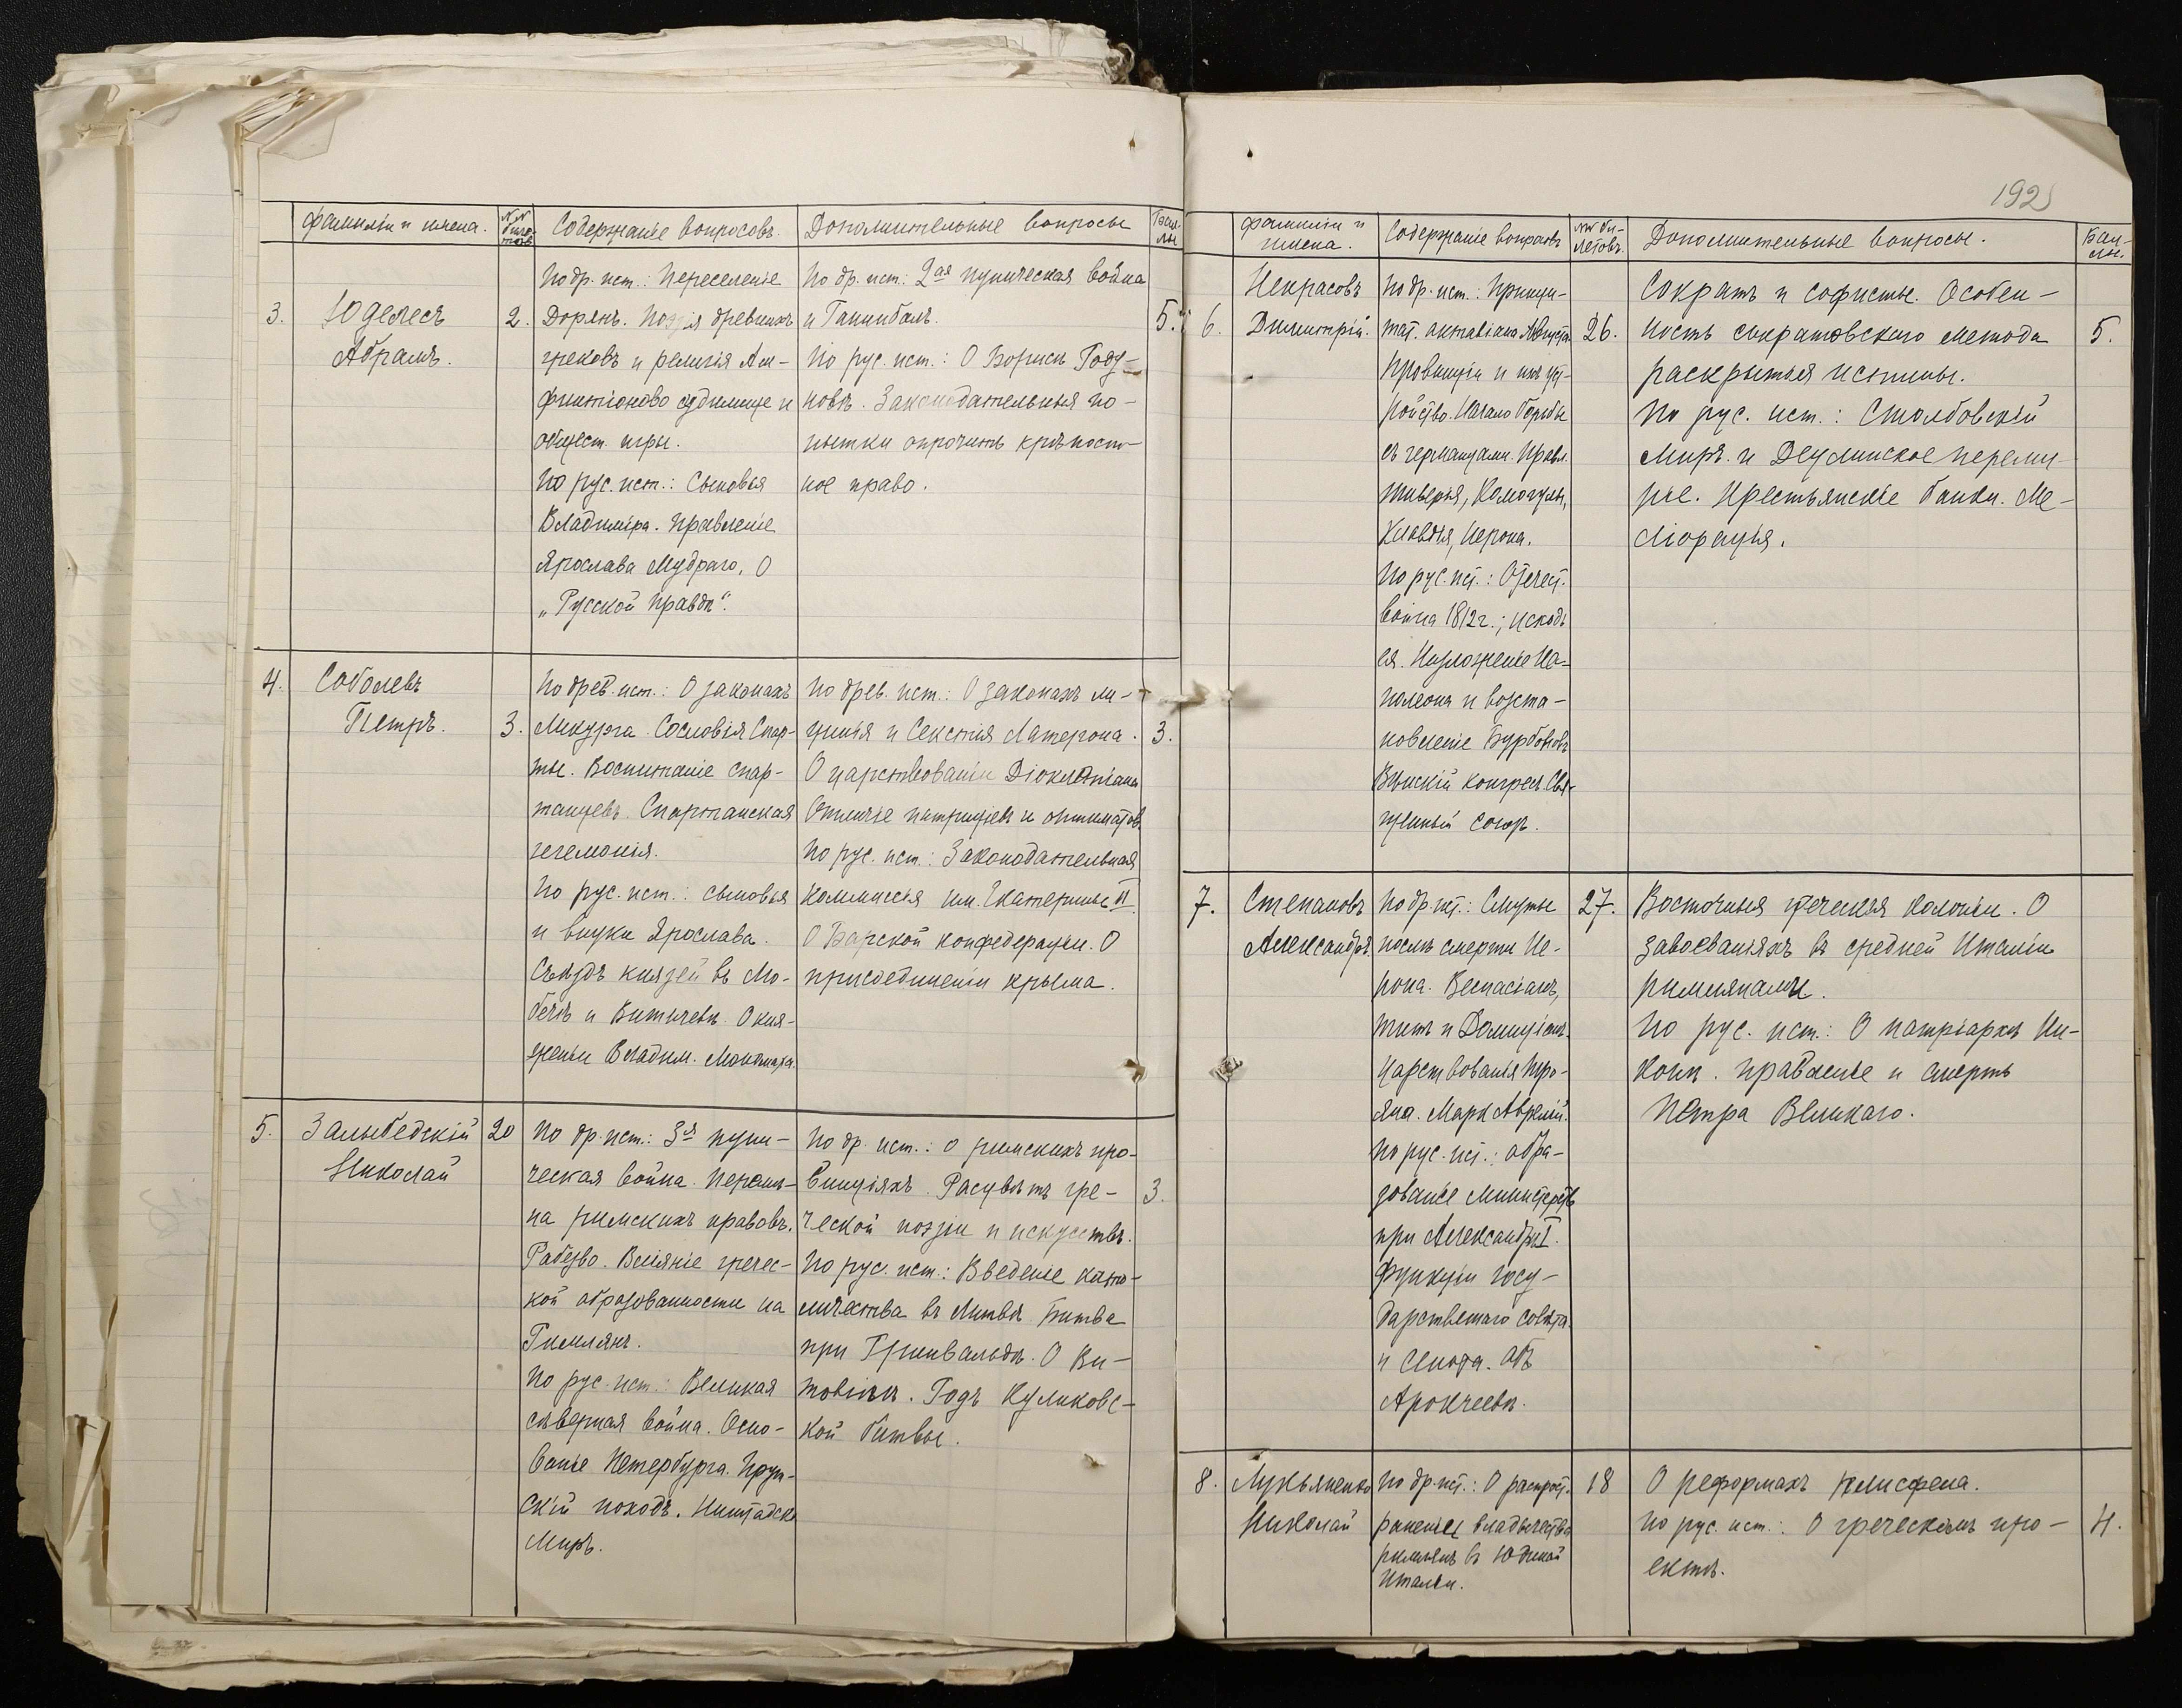 Фамиліи и имена.
№№ билетовъ
Содержаніе вопросовъ.
Дополнительные вопросы
Баллы
3.
Юделесъ
Абрамъ.
2.
По др. ист.: Переселеніе
Дорянъ. Поэзія древнихъ
грековъ и религія Ам-
фиктіоново судилище и
общест. игры.
По рус. ист.: Сыновья
Владиміра. Правленіе
Ярослава Мудраго. О
„Русской Правдѣ".
По др. ист.: 2ая пуническая война
и Ганнибалъ.
По рус. ист.: О Борисѣ Году-
новѣ. Законодательныя по-
пытки опрочить крѣпост-
ное право.
5.
4.
Соболевъ
Петръ.
3.
По древ. ист.: О законахъ
Ликурга. Сословія Спар-
ты. Воспитаніе спар-
танцевъ. Спартанская
гегемонія.
По рус. ист.: сыновья
и внуки Ярослава.
Съѣздъ князей въ Лю-
бечѣ и Витичевѣ. О кня-
женіи Владим. Мономаха.
По древ. ист.: О законахъ ли-
цинія и Секстія Латерана.
О царствованіи Діоклетіана
Отличіе патриціевъ и оптиматовъ
По рус. ист.: Законодательная
Коммиссія им. Екатерины II.
О Барской конфедераціи. О
присоединеніи крыма.
3.
5.
Залыбедскій
Николай
20
По др. ист.: 3я пуни-
ческая война. Перемѣ-
на римскихъ нравовъ.
Рабство. Вліяніе гречес-
кой образованности на
Римлянъ.
По рус. ист.: Великая
сѣверная война. Осно-
ваніе Петербурга. Прут-
скій походъ. Ништадск.
Миръ.
По др. ист.: о римскихъ про-
винціяхъ. Расцвѣтъ гре-
ческой поэзіи и искусствъ.
По рус. ист.: Введеніе като-
личества въ Литвѣ Битва
при Грюнвальдѣ. О Ви-
товтѣ. Годъ Куликовс-
кой битвы.
3.
192
Фамиліи и
имена.
Содержаніе вопросовъ
№№ би-
летовъ.
Дополнительные вопросы.
Бал-
лы.
6.
Некрасовъ
Димитрій.
По др. ист.: Принци-
пат. октавіана Августа
Провинціи и ихъ уст-
ройство. Начало борьбы
съ германцами. Правл.
тиверія, Калигулы,
Клавдія, Нерона.
По рус. ист.: Отечест.
война 1812 г.; исходъ
ея. Низложеніе На-
полеона и возста-
новленіе Бурбоновъ
Вѣнскій конгресъ. Свя-
щенный союзъ.
26.
Сократъ и софисты. Особен-
ность сократовскаго метода
раскрытія истины.
По рус. ист.: Столбовскій
Миръ. и Деулинское переми-
ріе. Крестьянскіе банки. Ме-
ліорація.
5.
7.
Степановъ
Александръ.
По др. ист.: Смуты
послѣ смерти Не-
рона. Веспасіанъ,
титъ и Домиціанъ.
Царствованія Тра-
яна. Марк Аврелій.
По рус. ист.: обра-
зованіе Министерствъ
при Александрѣ I.
Функціи госу-
дарственнаго совѣта
и Сената. Объ
Аракчеевѣ.
27.
Восточныя греческія колоніи. О
завоеваніяхъ въ средней Италіи
римлянами.
По рус. ист.: О патріархѣ Ни-
конѣ. правленіе и смерть
Петра Великаго.
8.
Лукьяненко
Николай
По др. ист.: О распрост-
раненіи владычества
римлянъ въ Южной
Италіи.
18
О реформахъ Клисфена.
По рус. ист.: О греческомъ про-
ектѣ.
4.